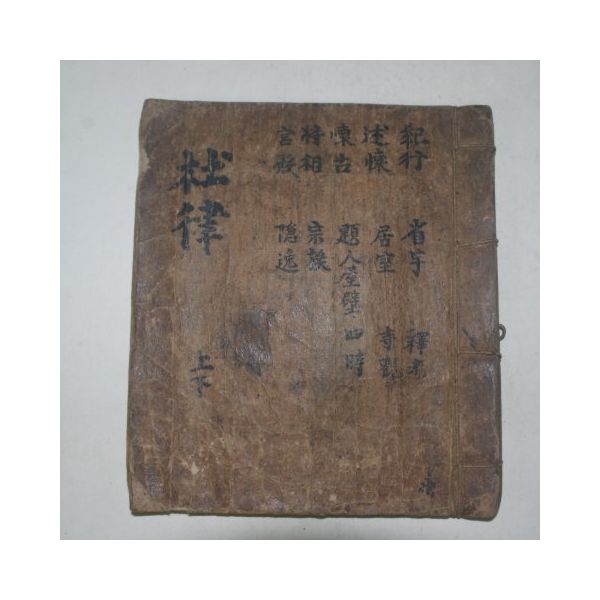 紀行 省宇 釋老
述懷 居室 寺觀
懷古 題人屋壁 四時
将相 宗族
宮殿 隐逸
杜律
上下